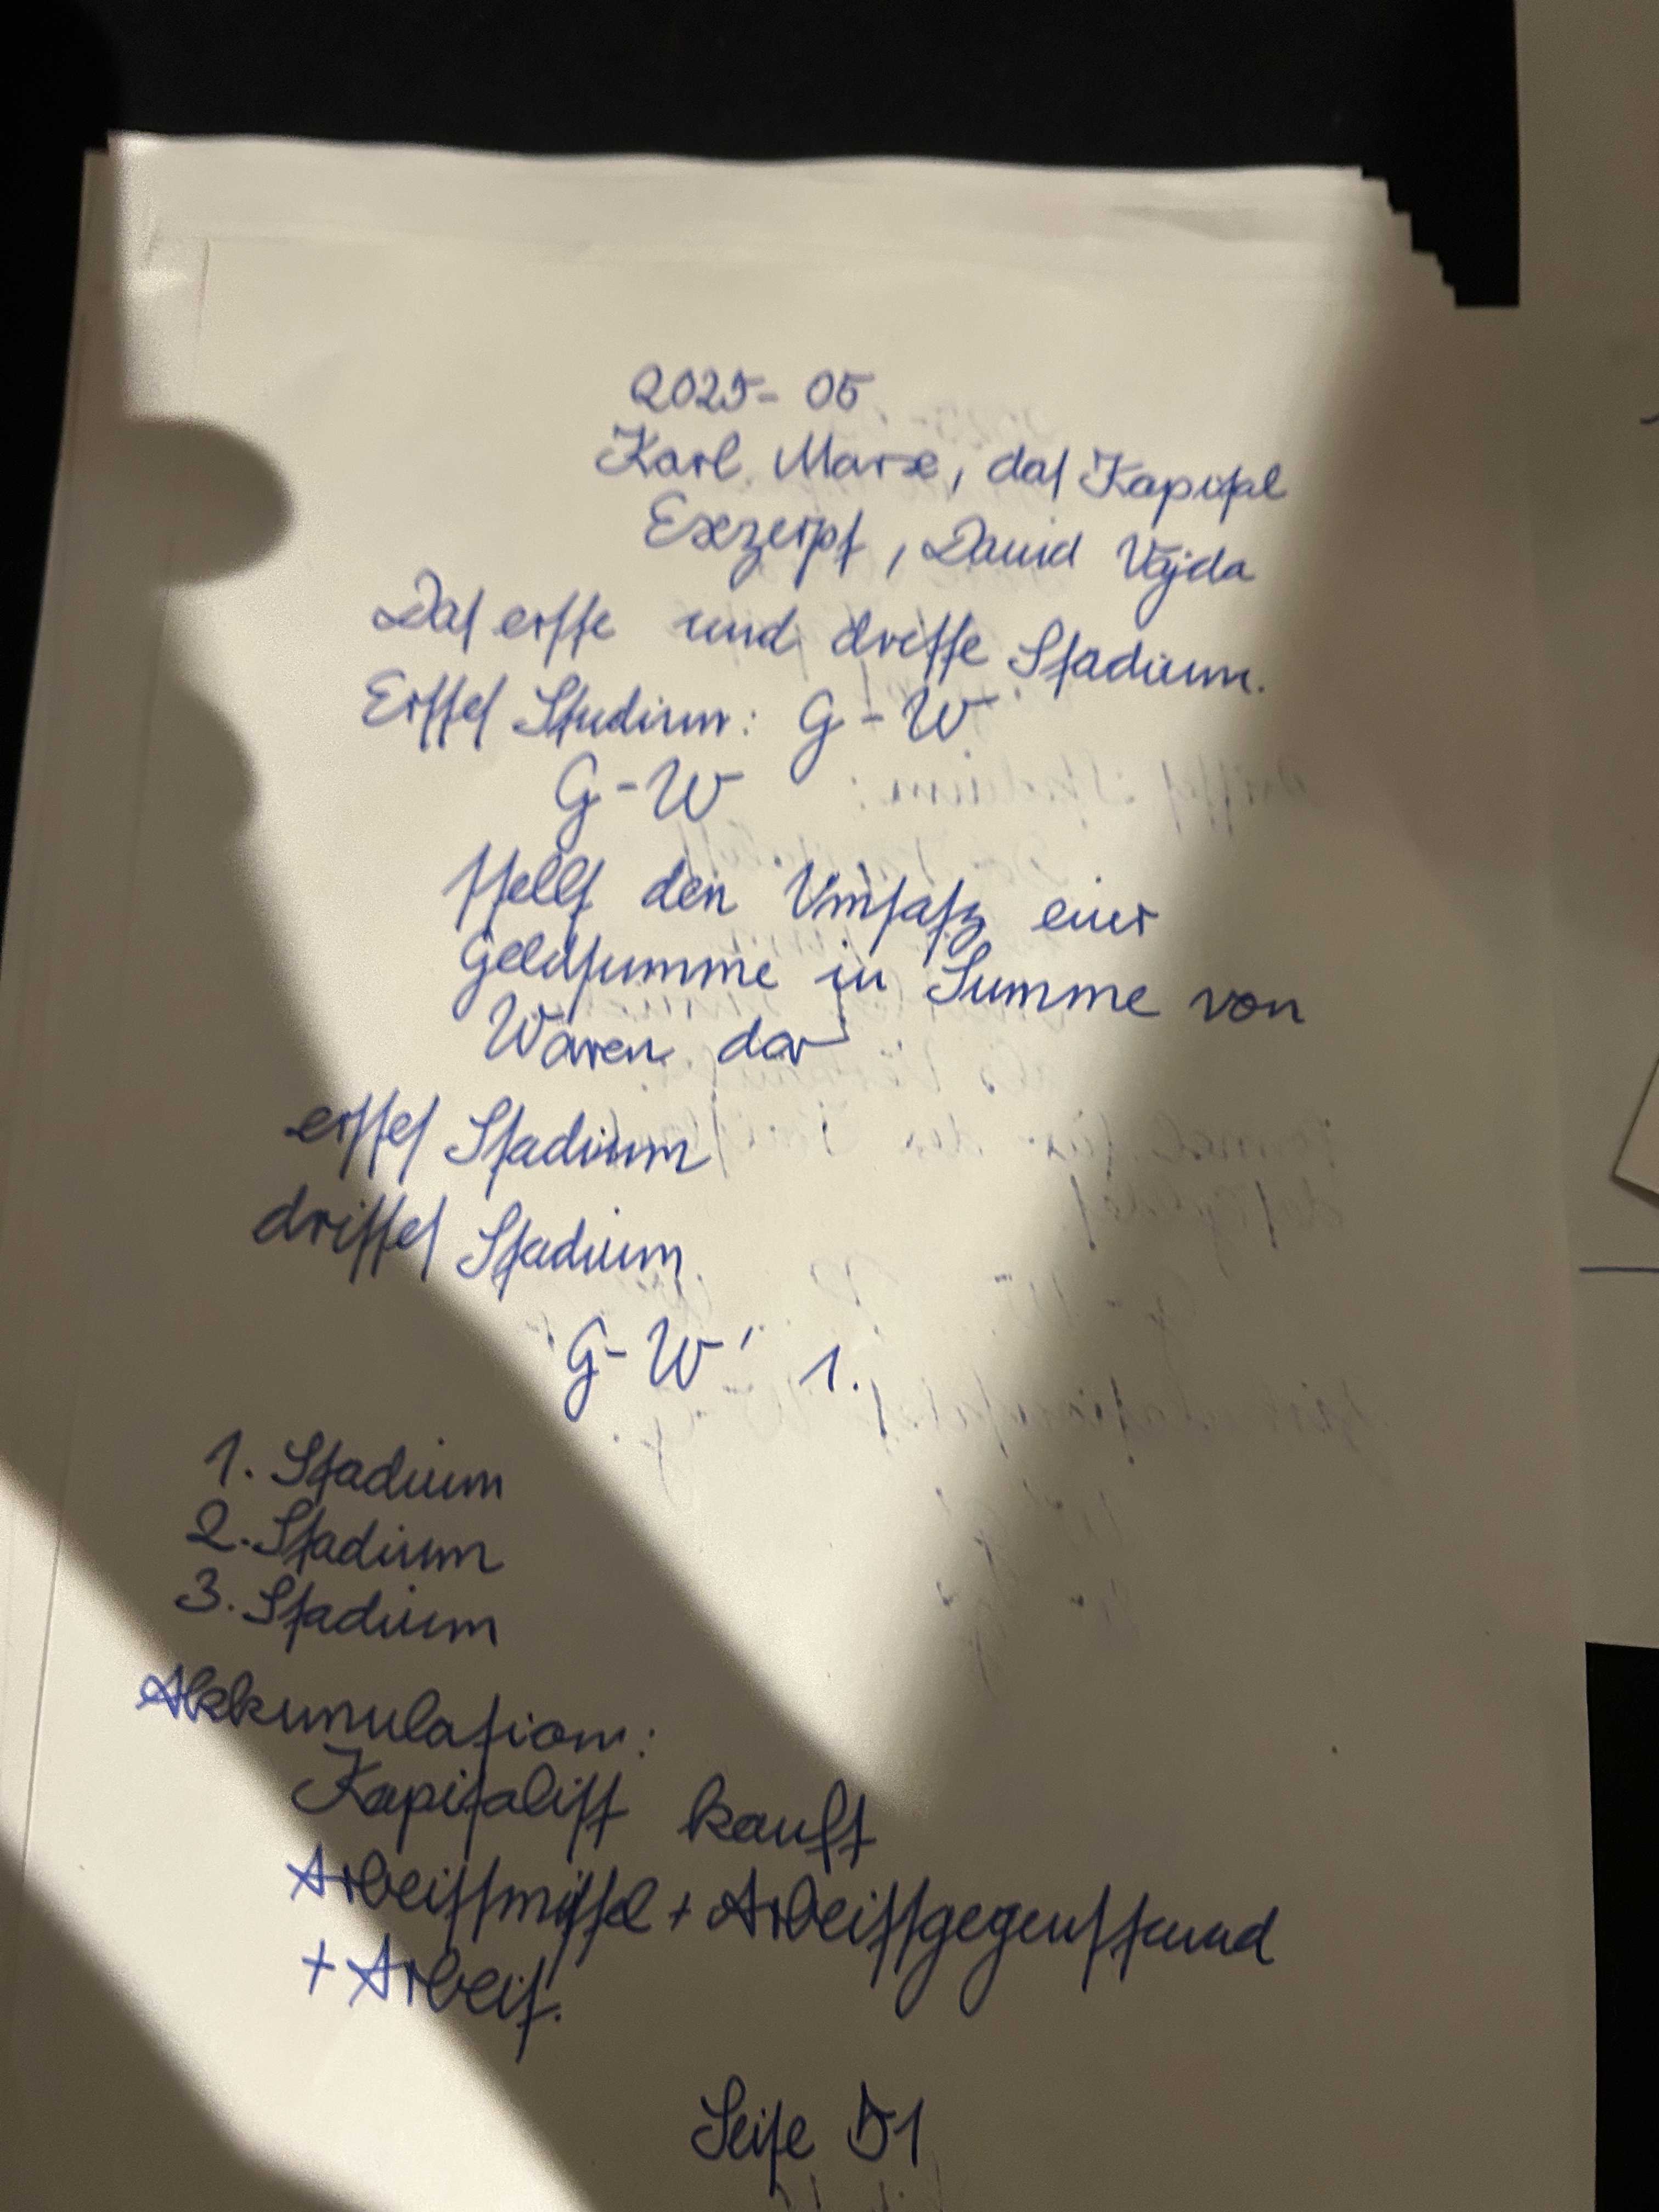 2025-05
Karl Marx, das Kapital
Exzerpt, David Vajda
Das erste und dritte Stadium.
Erstes Stadium: G-W
G-W
stellt den Umsatz einer
Geldsumme in Summe von
Waren dar
erstes Stadium
drittes Stadium
G-W' 1.
1. Stadium
2. Stadium
3. Stadium
Akkumulation:
Kapitalist kauft
Arbeitsmittel + Arbeitsgegenstand
+ Arbeit.
Seite 51